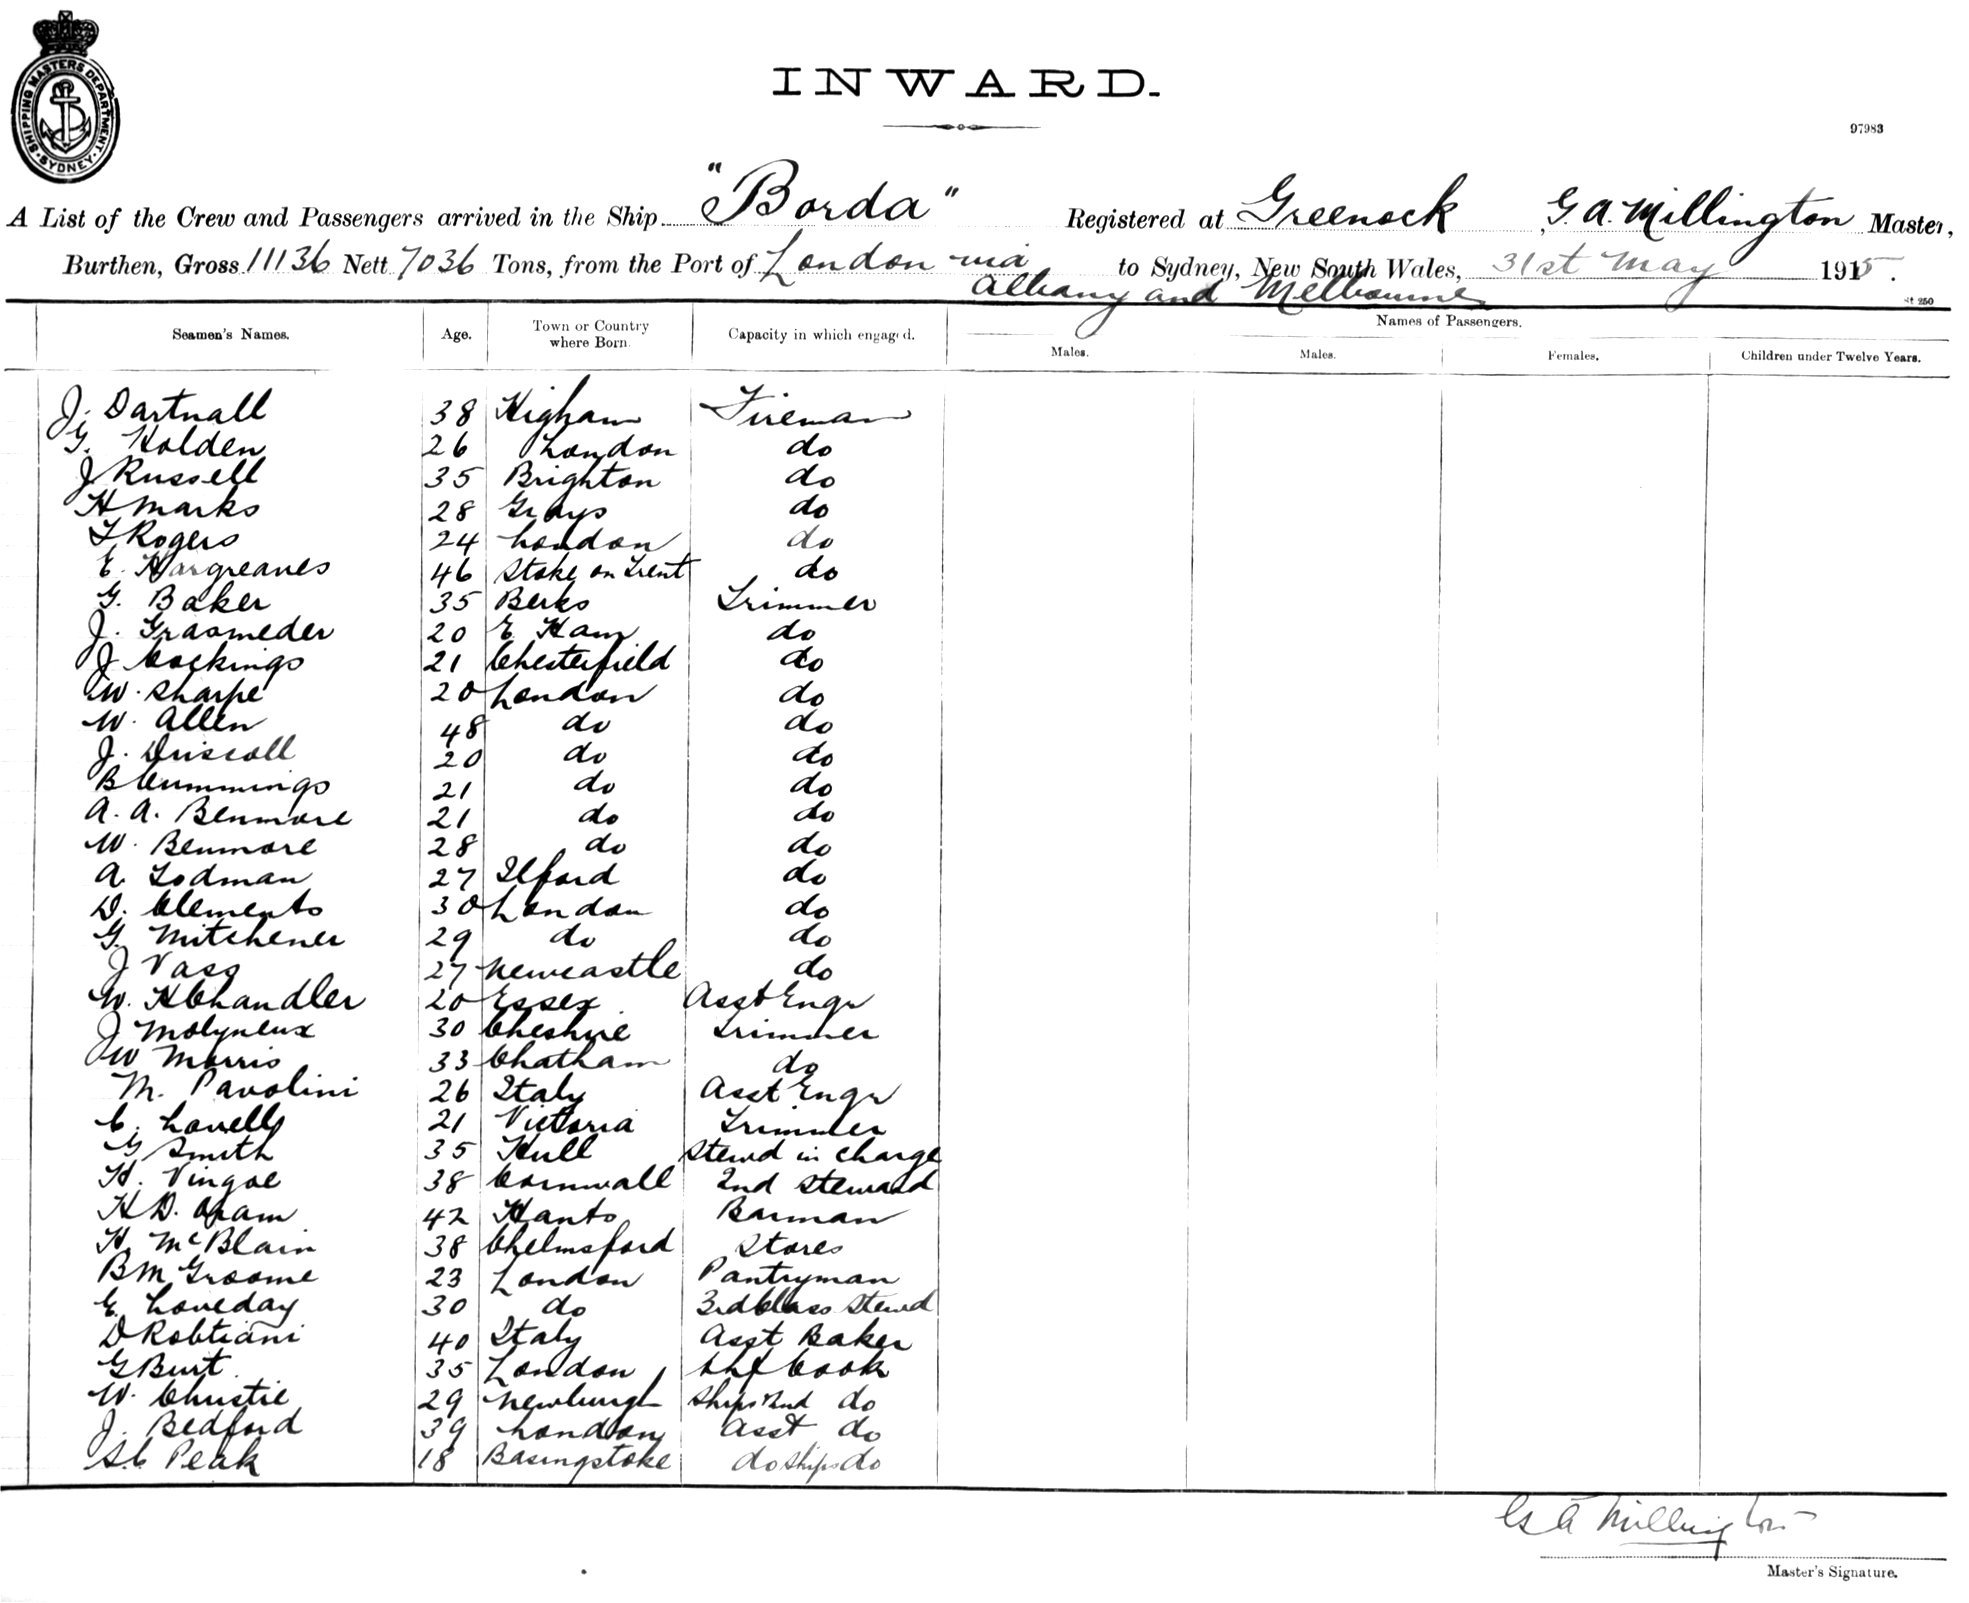 SHIPPING MASTERS DEPARTMENT. SYDNEY
INWARD.
97983
A List of the Crew and Passengers arrived in the Ship "Borda" Registered at Greenock, G. A. Millington Master,
Burthen, Gross 11136 Nett 7036 Tons, from the Port of London via to Sydney, New South Wales, 31st May 1915.
Albany and Melbourne
St 250
Seamen's Names. Age. Town or Country where Born. Capacity in which engaged. Names of Passengers.
Males. Males. Females. Children under Twelve Years.
J. Dartnall 38 Higham Fireman
G. Holden 26 London do
J Russell 35 Brighton do
H Marks 28 Grays do
F Rogers 24 London do
E. Hargreaves 46 Stoke on Trent do
G. Baker 35 Berks Trimmer
J. Grasmeder 20 E. Ham do
J Cockings 21 Chesterfield do
W. Sharpe 20 London do
W. Allen 48 do do
J. Driscoll 20 do do
B Cummings 21 do do
A. A. Benmore 21 do do
W. Benmore 28 do do
A. Lodman 27 Ilford do
D. Clements 30 London do
G. Mitchener 29 do do
J Vass 27 Newcastle do
W. H Chandler 20 Essex Asst Engr
J Molyneux 30 Cheshire Trimmer
W Morris 33 Chatham do
M. Pavolini 26 Italy Asst Engr
C. Lovell 21 Victoria Trimmer
G Smith 35 Hull Stewd in charge
H. Vingoe 38 Cornwall 2nd Steward
H D. Oram 42 Hants Barman
H. McBlain 38 Chelmsford Stores
B M Groome 23 London Pantryman
E. Loveday 30 do 3rd Class Stewd
D Robtiani 40 Italy Asst Baker
G Burt 35 London Chf Cook
W. Christie 29 Newburgh Ships 2nd do
J. Bedford 39 London Asst do
S. C Peak 18 Basingstoke do Ships do
G A Millington
Master's Signature.